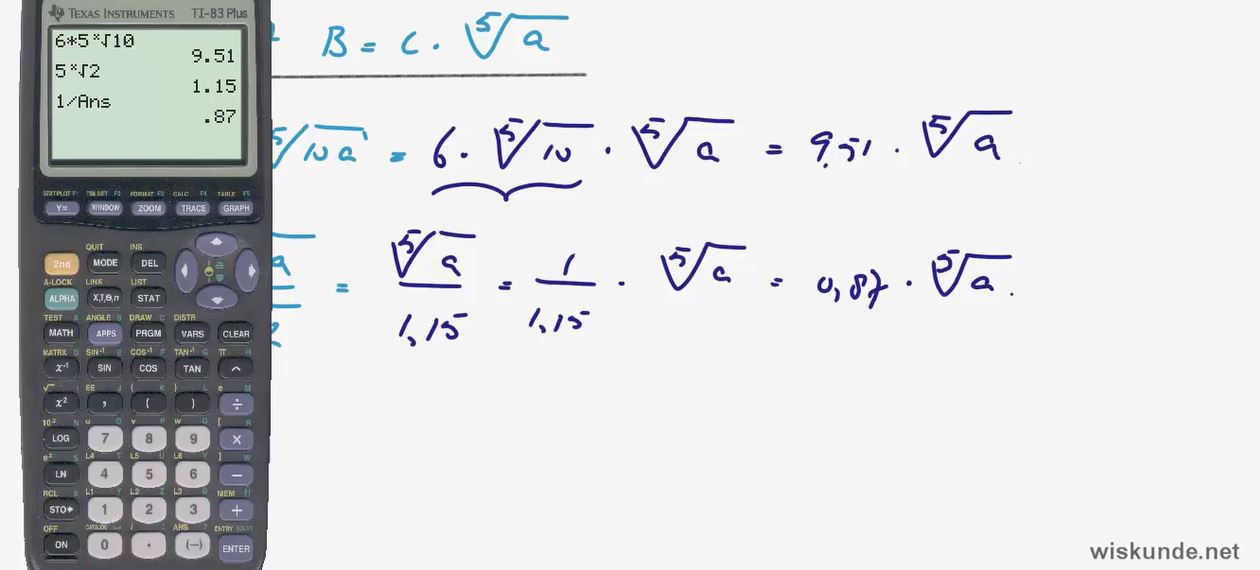 TEXAS INSTRUMENTS TI-83 Plus
6*5ˣ√10
9.51
5ˣ√2
1.15
1/Ans
.87
B = c · ⁵√a
⁵√10a = 6 · ⁵√10 · ⁵√a = 9,51 · ⁵√a
= ⁵√a / 1,15 = 1 / 1,15 · ⁵√a = 0,87 · ⁵√a.
STAT PLOT F1 TBLSET F2 FORMAT F3 CALC F4 TABLE F5
Y= WINDOW ZOOM TRACE GRAPH
QUIT INS
2nd MODE DEL
A-LOCK LINK LIST
ALPHA X,T,Θ,n STAT
TEST A ANGLE B DRAW C DISTR
MATH APPS PRGM VARS CLEAR
MATRX D SIN⁻¹ E COS⁻¹ F TAN⁻¹ G π H
x⁻¹ SIN COS TAN ^
√ I EE J { K } L e M
x² , ( ) ÷
10ˣ N u O v P w Q [ R
LOG 7 8 9 ×
eˣ S L4 T L5 U L6 V ] W
LN 4 5 6 −
RCL X L1 Y L2 Z L3 θ MEM "
STO▸ 1 2 3 +
OFF CATALOG i : ANS ? ENTRY SOLVE
ON 0 . (−) ENTER
wiskunde.net